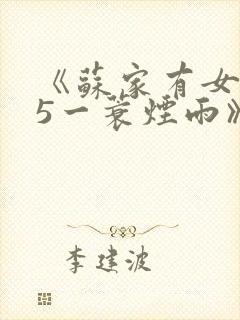 《蘇家有女
5一蓑煙雨》
李建波